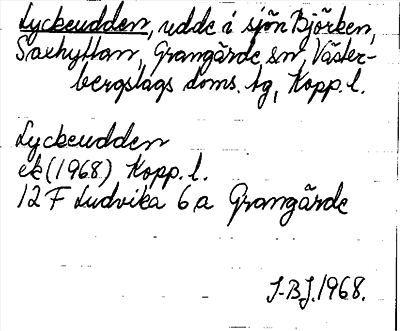 Lyckeudden, udde i sjön Björken,
Saxhyttan, Grangärde sn, Väster-
bergslags doms. tg, Kopp. l.
Lyckeudden
ek (1968) Kopp. l.
12 F Ludvika 6 a Grangärde
J-BJ. 1968.